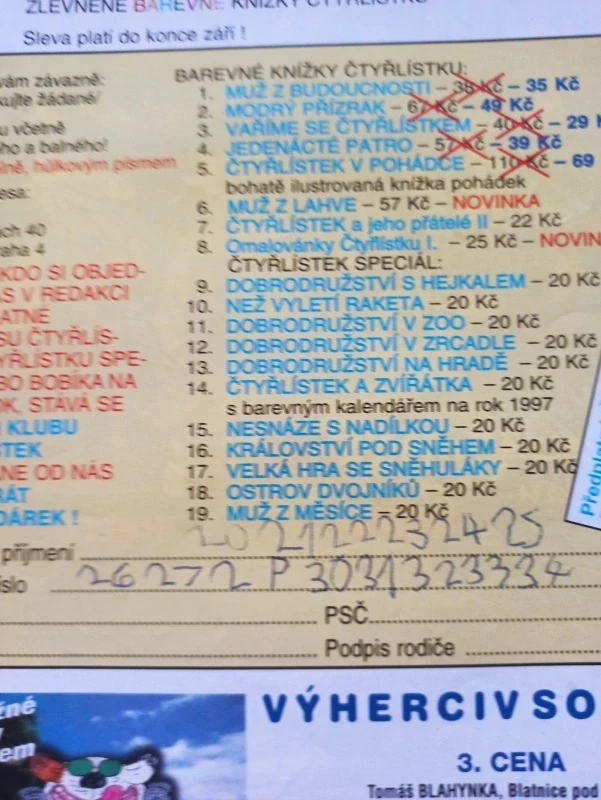 ZLEVNĚNÉ BAREVNÉ KNÍŽKY ČTYŘLÍSTKU
Sleva platí do konce září !
vám závazně:
kujte žádané/
u včetně
ho a balného!
lně, hůlkovým písmem
esa:
ch 40
raha 4
KDO SI OBJED-
ÁS V REDAKCI
ATNÉ
SU ČTYŘLÍS-
YŘLÍSTKU SPE-
BO BOBÍKA NA
OK, STÁVÁ SE
KLUBU
STEK
NE OD NÁS
RÁT
DÁREK !
BAREVNÉ KNÍŽKY ČTYŘLÍSTKU:
1. MUŽ Z BUDOUCNOSTI – 38 Kč – 35 Kč
2. MODRÝ PŘÍZRAK – 67 Kč – 49 Kč
3. VAŘÍME SE ČTYŘLÍSTKEM – 40 Kč – 29 K
4. JEDENÁCTÉ PATRO – 57 Kč – 39 Kč
5. ČTYŘLÍSTEK V POHÁDCE – 110 Kč – 69
bohatě ilustrovaná knížka pohádek
6. MUŽ Z LAHVE – 57 Kč – NOVINKA
7. ČTYŘLÍSTEK a jeho přátelé II – 22 Kč
8. Omalovánky Čtyřlístku I. – 25 Kč – NOVIN
ČTYŘLÍSTEK SPECIÁL:
9. DOBRODRUŽSTVÍ S HEJKALEM – 20 Kč
10. NEŽ VYLETÍ RAKETA – 20 Kč
11. DOBRODRUŽSTVÍ V ZOO – 20 Kč
12. DOBRODRUŽSTVÍ V ZRCADLE – 20 Kč
13. DOBRODRUŽSTVÍ NA HRADĚ – 20 Kč
14. ČTYŘLÍSTEK A ZVÍŘÁTKA – 20 Kč
s barevným kalendářem na rok 1997
15. NESNÁZE S NADÍLKOU – 20 Kč
16. KRÁLOVSTVÍ POD SNĚHEM – 20 Kč
17. VELKÁ HRA SE SNĚHULÁKY – 20 Kč
18. OSTROV DVOJNÍKŮ – 20 Kč
19. MUŽ Z MĚSÍCE – 20 Kč
Předplat
příjmení 20 21 22 23 24 25
íslo 26 27 2 P 30 31 32 33 34
PSČ
Podpis rodiče
žné
em
VÝHERCI V SO
3. CENA
Tomáš BLAHYNKA, Blatnice pod